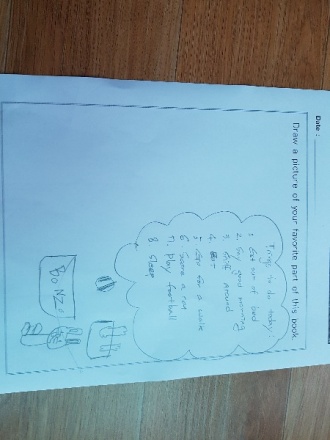 Date:
Draw a picture of your favorite part of this book.
Things to do today:
1. Get out of bed
2. Say good morning
3. Sniff around
4. eat
5. Go for a walk
6. Scare a cat
7. Play football
8. Sleep
BONZO